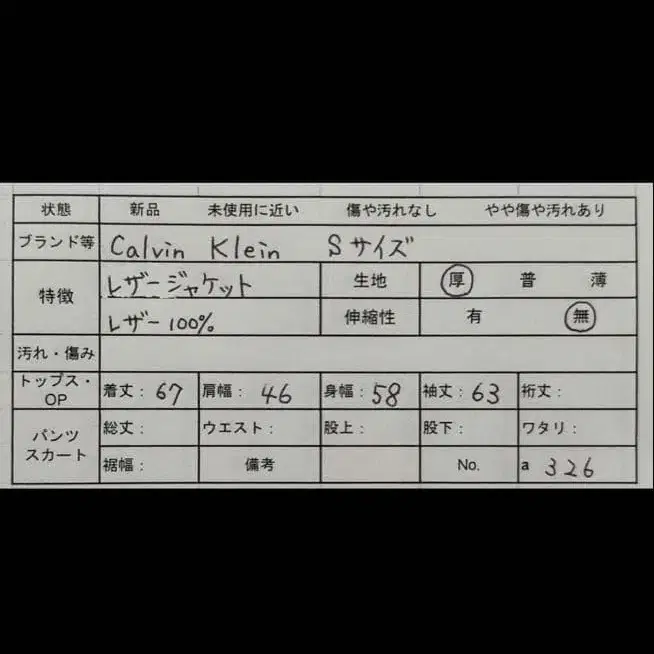 状態 新品 未使用に近い 傷や汚れなし やや傷や汚れあり
ブランド等 Calvin Klein Sサイズ
特徴 レザージャケット 生地 厚 普 薄
レザー100% 伸縮性 有 無
汚れ・傷み
トップス・OP 着丈：67 肩幅：46 身幅：58 袖丈：63 裄丈：
パンツ スカート 総丈： ウエスト： 股上： 股下： ワタリ：
裾幅： 備考 No. a 326